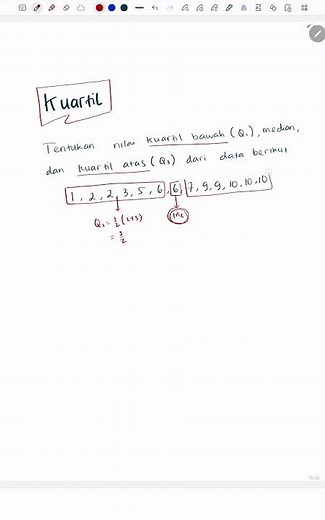 Kuartil
Tentukan nilai kuartil bawah (Q₁), median,
dan kuartil atas (Q₃) dari data berikut
1, 2, 2, 3, 5, 6, 6, 7, 9, 9, 10, 10, 10
Q₁ = 1/2 (2+3)
Me